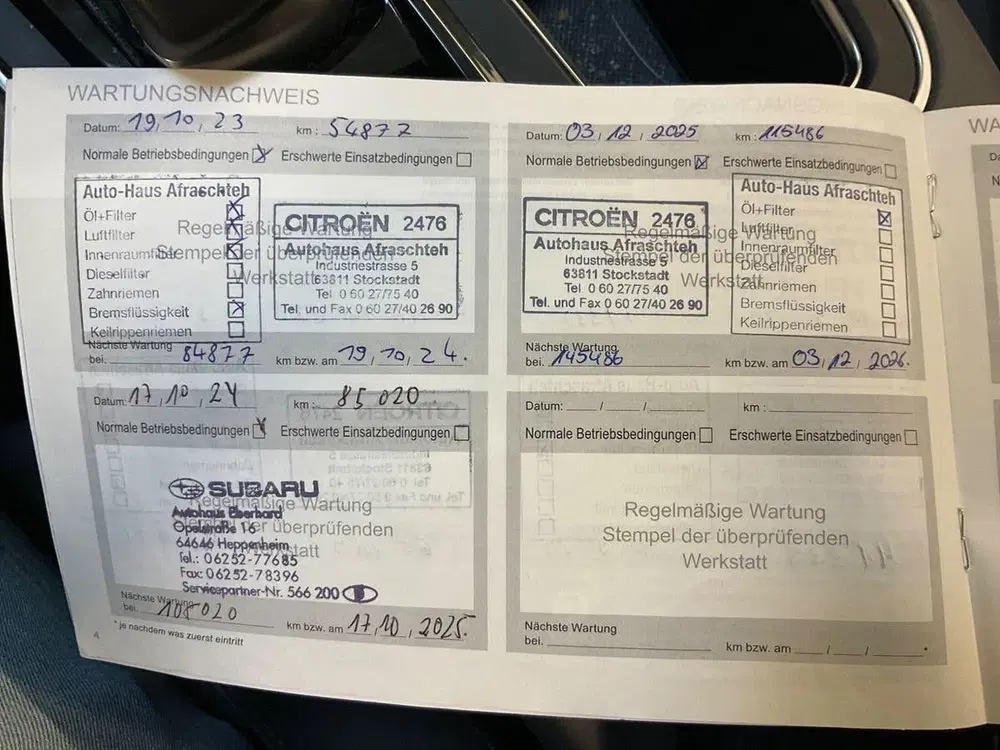 WARTUNGSNACHWEIS
Datum: 19, 10, 23 km: 54877
Normale Betriebsbedingungen Erschwerte Einsatzbedingungen
Auto-Haus Afraschteh
Öl+Filter
Luftfilter
Innenraumfilter
Dieselfilter
Zahnriemen
Bremsflüssigkeit
Keilrippenriemen
Regelmäßige Wartung
Stempel der überprüfenden
Werkstatt
CITROËN 2476
Autohaus Afraschteh
Industriestrasse 5
63811 Stockstadt
Tel 0 60 27/75 40
Tel. und Fax 0 60 27/40 26 90
Nächste Wartung
bei. 84877 km bzw. am 19, 10, 24.
Datum: 17, 10, 24 km: 85 020
Normale Betriebsbedingungen Erschwerte Einsatzbedingungen
SUBARU
Regelmäßige Wartung
Autohaus Eberhard
Opelstraße 16
der überprüfenden
64646 Heppenheim
Werkstatt
Tel.: 06252-77685
Fax: 06252-78396
Servicepartner-Nr. 566 200
Nächste Wartung
bei. 108020 km bzw. am 17, 10, 2025.
* je nachdem was zuerst eintritt
4
Datum: 03, 12, 2025 km: 115486
Normale Betriebsbedingungen Erschwerte Einsatzbedingungen
CITROËN 2476
Autohaus Afraschteh
Industriestrasse 5
63811 Stockstadt
Tel 0 60 27/75 40
Tel. und Fax 0 60 27/40 26 90
Regelmäßige Wartung
Stempel der überprüfenden
Werkstatt
Auto-Haus Afraschteh
Öl+Filter
Luftfilter
Innenraumfilter
Dieselfilter
Zahnriemen
Bremsflüssigkeit
Keilrippenriemen
Nächste Wartung
bei. 145486 km bzw. am 03, 12, 2026.
Datum: / / km:
Normale Betriebsbedingungen Erschwerte Einsatzbedingungen
Regelmäßige Wartung
Stempel der überprüfenden
Werkstatt
Nächste Wartung
bei. km bzw. am / / *
WA